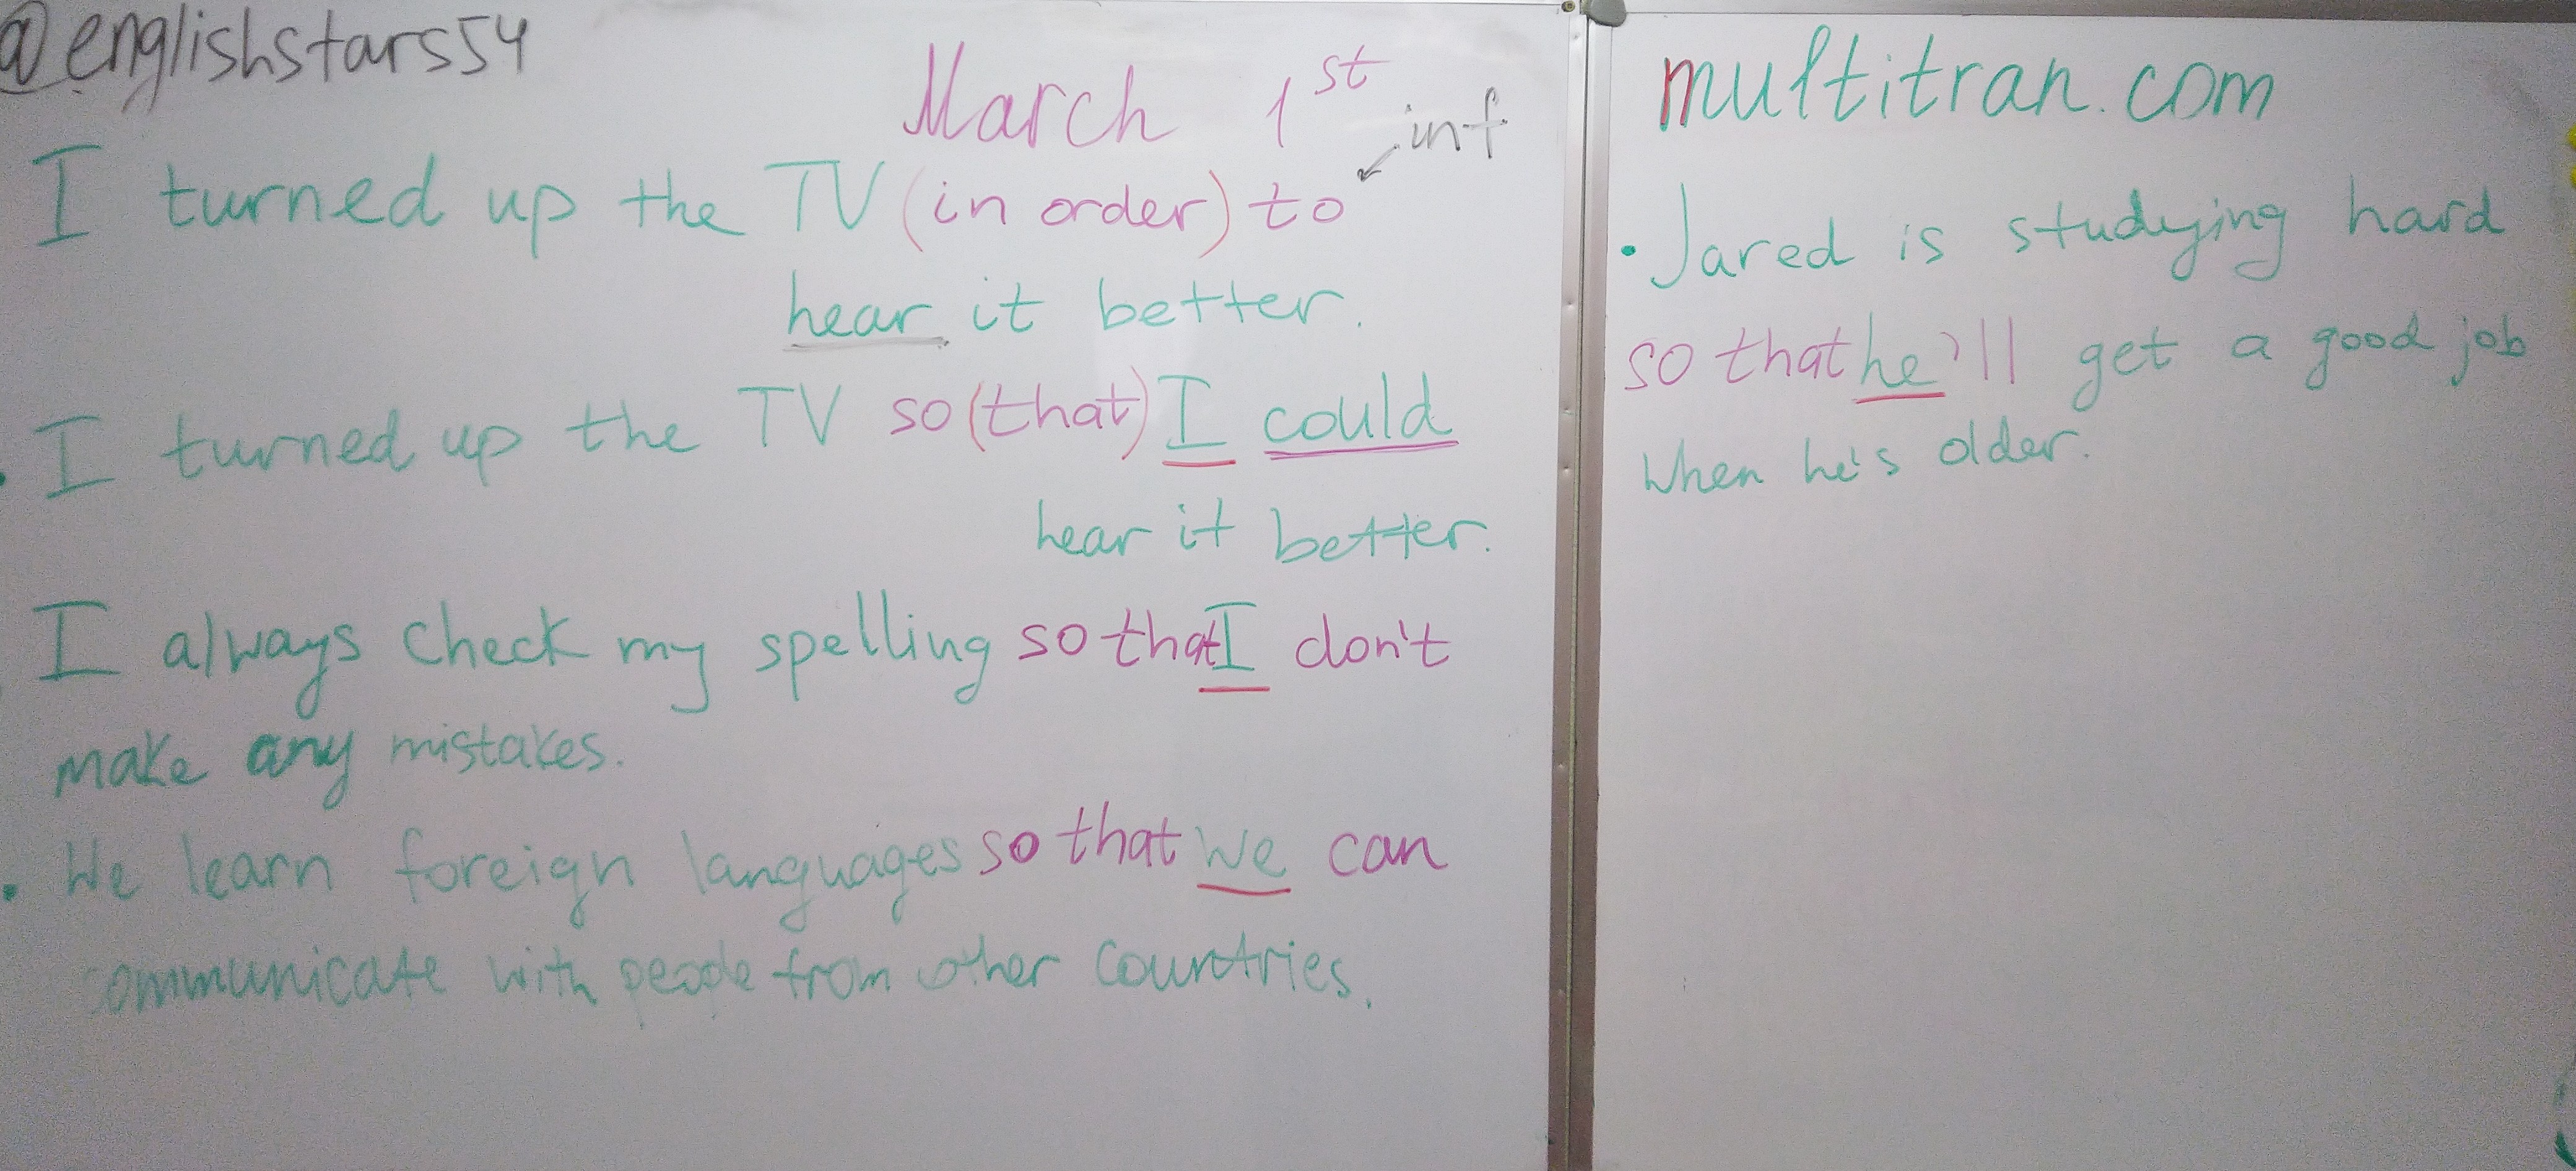 @englishstars54
March 1st
inf
I turned up the TV (in order) to
hear it better.
. I turned up the TV so (that) I could
hear it better.
I always check my spelling so that I don't
make any mistakes.
. We learn foreign languages so that we can
communicate with people from other countries.
multitran.com
. Jared is studying hard
so that he'll get a good job
when he's older.